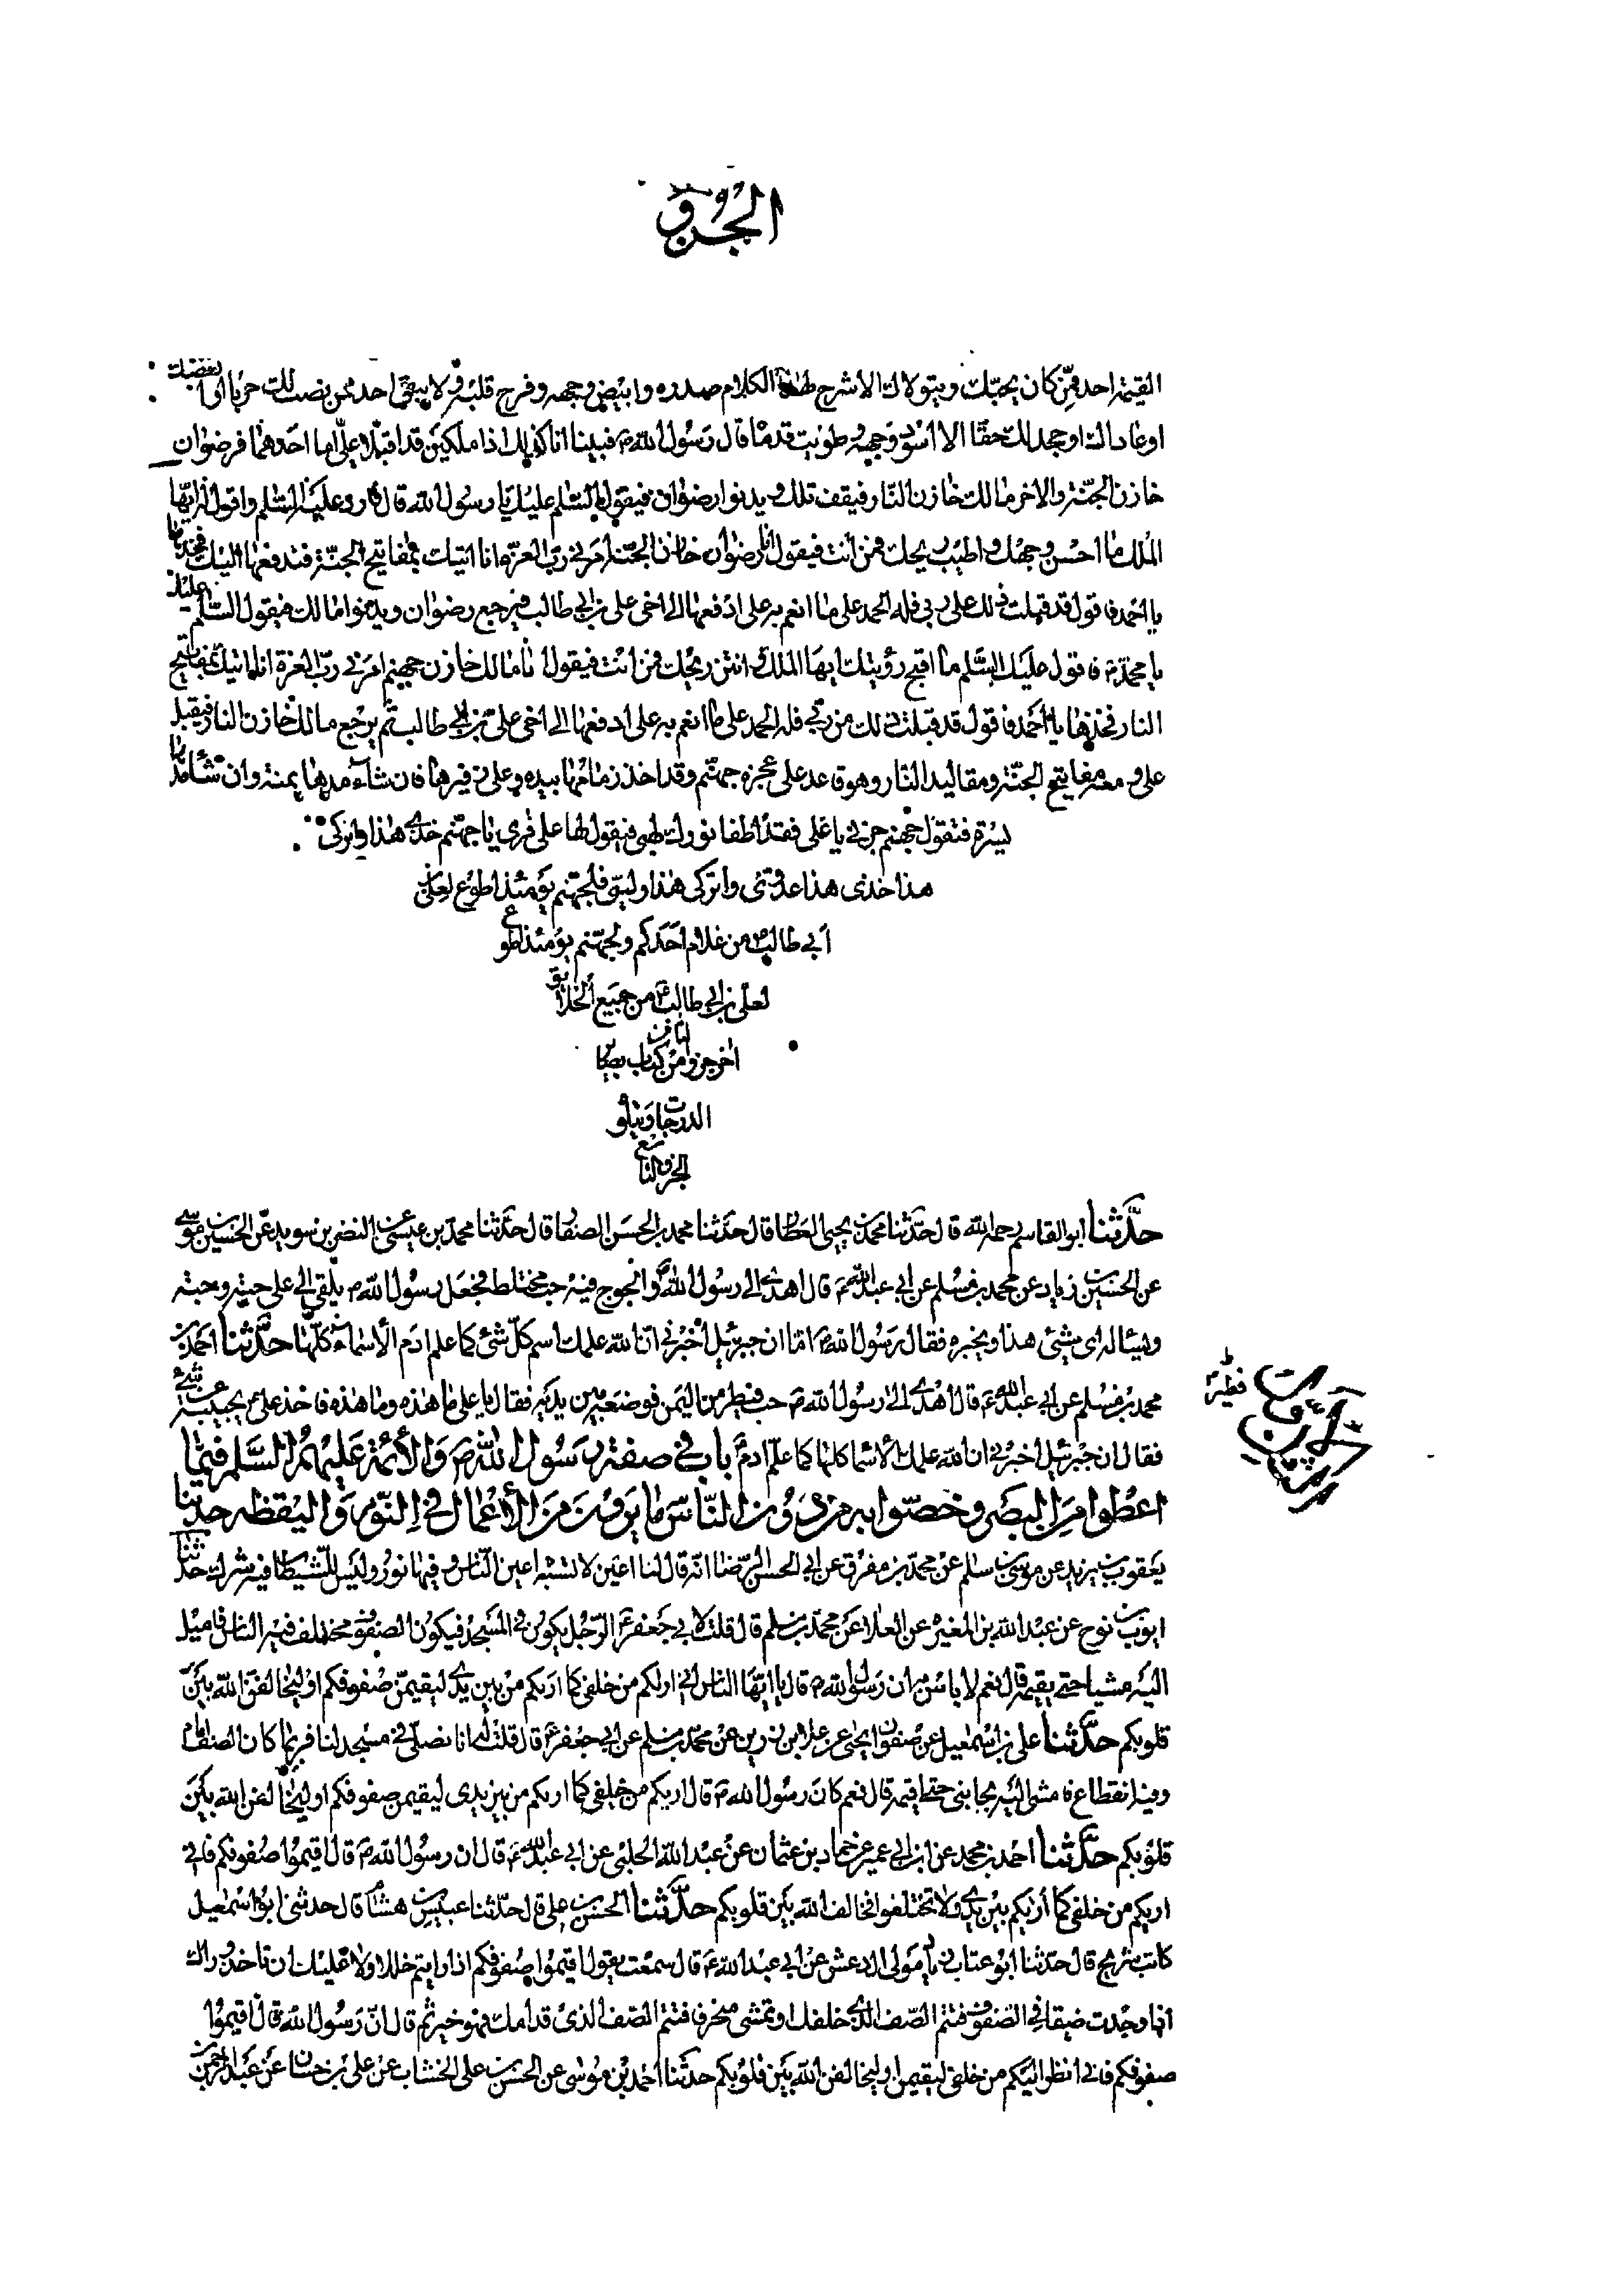 الجزؤ
القيمة احد ممن كان يحبك ويتولاك الا شرح لهذا الكلام صدره وابيض وجهه وفرح قلبه ولا يبقى احد ممن نصب لك حربا او ابغضك
او عاداك او جحد لك حقا الا اسود وجهه وطويت قدماه قال رسول الله ص فبينا انا كذلك اذا ملكين قد اقبلا علي اما احدهما فرضوان
خازن الجنة والاخر مالك خازن النار فيقف مالك ويدنوا رضوان فيقول السلم عليك يا رسول الله قال فارد عليه السلم واقول له ايها
الملك ما احسن وجهك واطيب ريحك فمن انت فيقول انا رضوان خازن الجنة امرني رب العزة ان اتيك بمفاتيح الجنة فتدفعها اليك فخذها
يا احمد فاقول قد قبلت ذلك من ربي فله الحمد على ما انعم به علي ادفعها الى اخي علي بن ابي طالب فيرجع رضوان ويدنوا مالك فيقول السلم عليك
يا محمد ص فاقول عليك السلم ما اقبح رؤيتك ايها الملك وانتن ريحك فمن انت فيقول انا مالك خازن جهنم امرني رب العزة ان اتيك بمفاتيح
النار فخذها يا احمد فاقول قد قبلت ذلك من ربي فله الحمد على ما انعم به علي ادفعها الى اخي علي بن ابي طالب ثم يرجع مالك خازن النار فيقبل
علي ومعه مفاتيح الجنة ومقاليد النار وهو قاعد على عجزة جهنم وقد اخذ زمامها بيده وعلى زفيرها فان شاء مدها يمنة وان شاء مدها
يسرة فتقول جهنم جزني يا علي فقد اطفا نورك لهبي فيقول لها علي قري يا جهنم خذي هذا واتركي
هذا خذي هذا عدوي واتركي هذا وليي فلجهنم يومئذ اطوع لعلي بن
ابي طالب من غلام احدكم ولجهنم يومئذ اطوع
لعلي بن ابي طالب ع من جميع الخلايق
اخر جزو الثامن من كتاب بصاير
الدرجات ويتلو
الجزو التاسع
حدثنا ابو القاسم رحمه الله قال حدثنا محمد بن يحيى العطار قال حدثنا محمد بن الحسن الصفار قال حدثنا محمد بن عيسى عن النضر بن سويد عن الحسين بن موسى
عن الحسين بن زياد عن محمد بن مسلم عن ابي عبد الله ع قال اهدي الى رسول الله ص دانجوج فيه حب مختلط فجعل رسول الله ص يلقي الى علي حبة وحبة
ويسئاله اي شيئ هذا ويخبره فقال رسول الله ص اما ان جبرئيل اخبرني ان الله علمك اسم كل شئ كما علم ادم الاسماء كلها حدثنا احمد بن
محمد بن مسلم عن ابي عبد الله ع قال اهدي الى رسول الله ص حب فيطر من اليمن فوضعه بين يديه فقال يا علي ما هذه وما هذه فاخذ علي ع يجيبه عن شئ شئ
فقال ان جبرئيل اخبرني ان الله علمك الاسما كلها كما علم ادم باب في صفة رسول الله ص والائمة عليهم السلم فيما
اعطوا من البصر وخصوا به من دون الناس ما يرون من الاعمال في النوم واليقظه حدثنا
يعقوب بن يزيد عن موسى بن سلام عن محمد بن مفرق عن ابي الحسن الرضا انه قال لنا اعين لا تشبه اعين الناس وفيها نور وليس للشيطان فيه شرك حدثنا
ايوب بن نوح عن عبد الله بن المغيرة عن العلا عن محمد بن مسلم قال قلت لابي جعفر ع الرجل يكون في المسجد فيكون الصفوف مختلف فيه الناس فاميل
اليه مشيا حتى يقيمه قال نعم لا باس به ان رسول الله ص قال يا ايها الناس اني اراكم من خلفي كما اراكم من بين يدي لتقيمن صفوفكم او ليخالفن الله بين
قلوبكم حدثنا علي بن اسمعيل عن صفوان بن يحيى عن علا بن رزين عن محمد بن مسلم عن ابي جعفر ع قال قلت له انا نصلي في مسجد لنا فربما كان الصف امامي
وفيه انقطاع فامشى اليه بجانبي حتى اقيمه قال نعم كان رسول الله ص قال اريكم من خلفي كما اريكم من بين يدي لتقيمن صفوفكم او ليخالفن الله بين
قلوبكم حدثنا احمد بن محمد عن ابن ابي عمير عن حماد بن عثمان عن عبد الله الحلبي عن ابي عبد الله ع قال ان رسول الله ص قال اقيموا صفوفكم فاني
اريكم من خلفي كما اريكم بين يدي ولا تختلفوا فيخالف الله بين قلوبكم حدثنا الحسن بن علي قال حدثنا عبيس بن هشام قال حدثني ابو اسمعيل
كاتب شريح قال حدثنا ابو عتاب زياد مولى ال دعش عن ابي عبد الله ع قال سمعته يقول اقيموا صفوفكم اذا رايتم خللا ولا عليك ان تاخذ وراك
اذا وجدت ضيقا في الصفوف فتتم الصف الذي خلفك او تمشي منحرفا فتتم الصف الذي قدامك فهو خير ثم قال ان رسول الله قال اقيموا
صفوفكم فاني انظر اليكم من خلفي لتقيمن او ليخالفن الله بين قلوبكم حدثنا احمد بن موسى عن الحسن بن علي الخشاب عن علي بن حسان عن عبد الرحمن بن